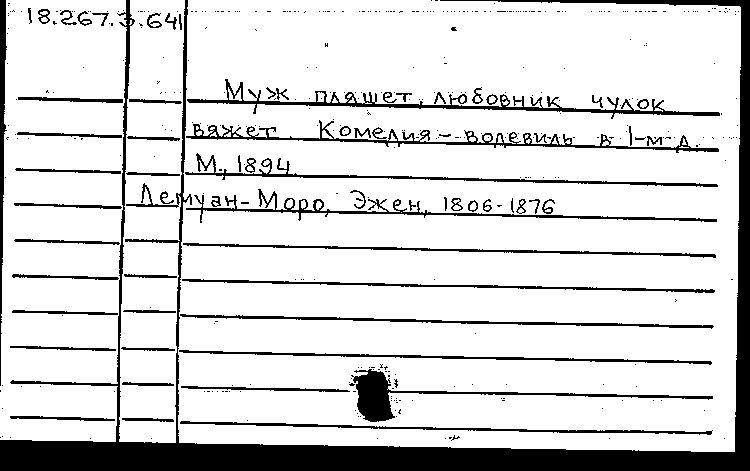 18.267.3.641
Муж пляшет, любовник чулок
вяжет. Комедия-водевиль в 1-м д.
М., 1894
Лемуан-Моро, Эжен, 1806-1876